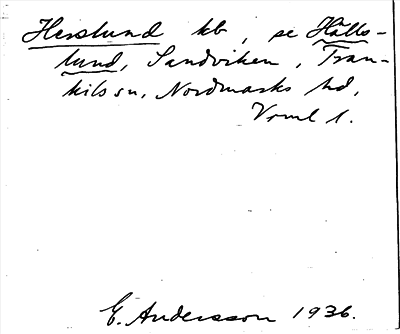 Herslund kb, se Hälls-
lund, Sandviken, Tran-
kils sn, Nordmarks hd,
Vrml l.
E. Andersson 1936.